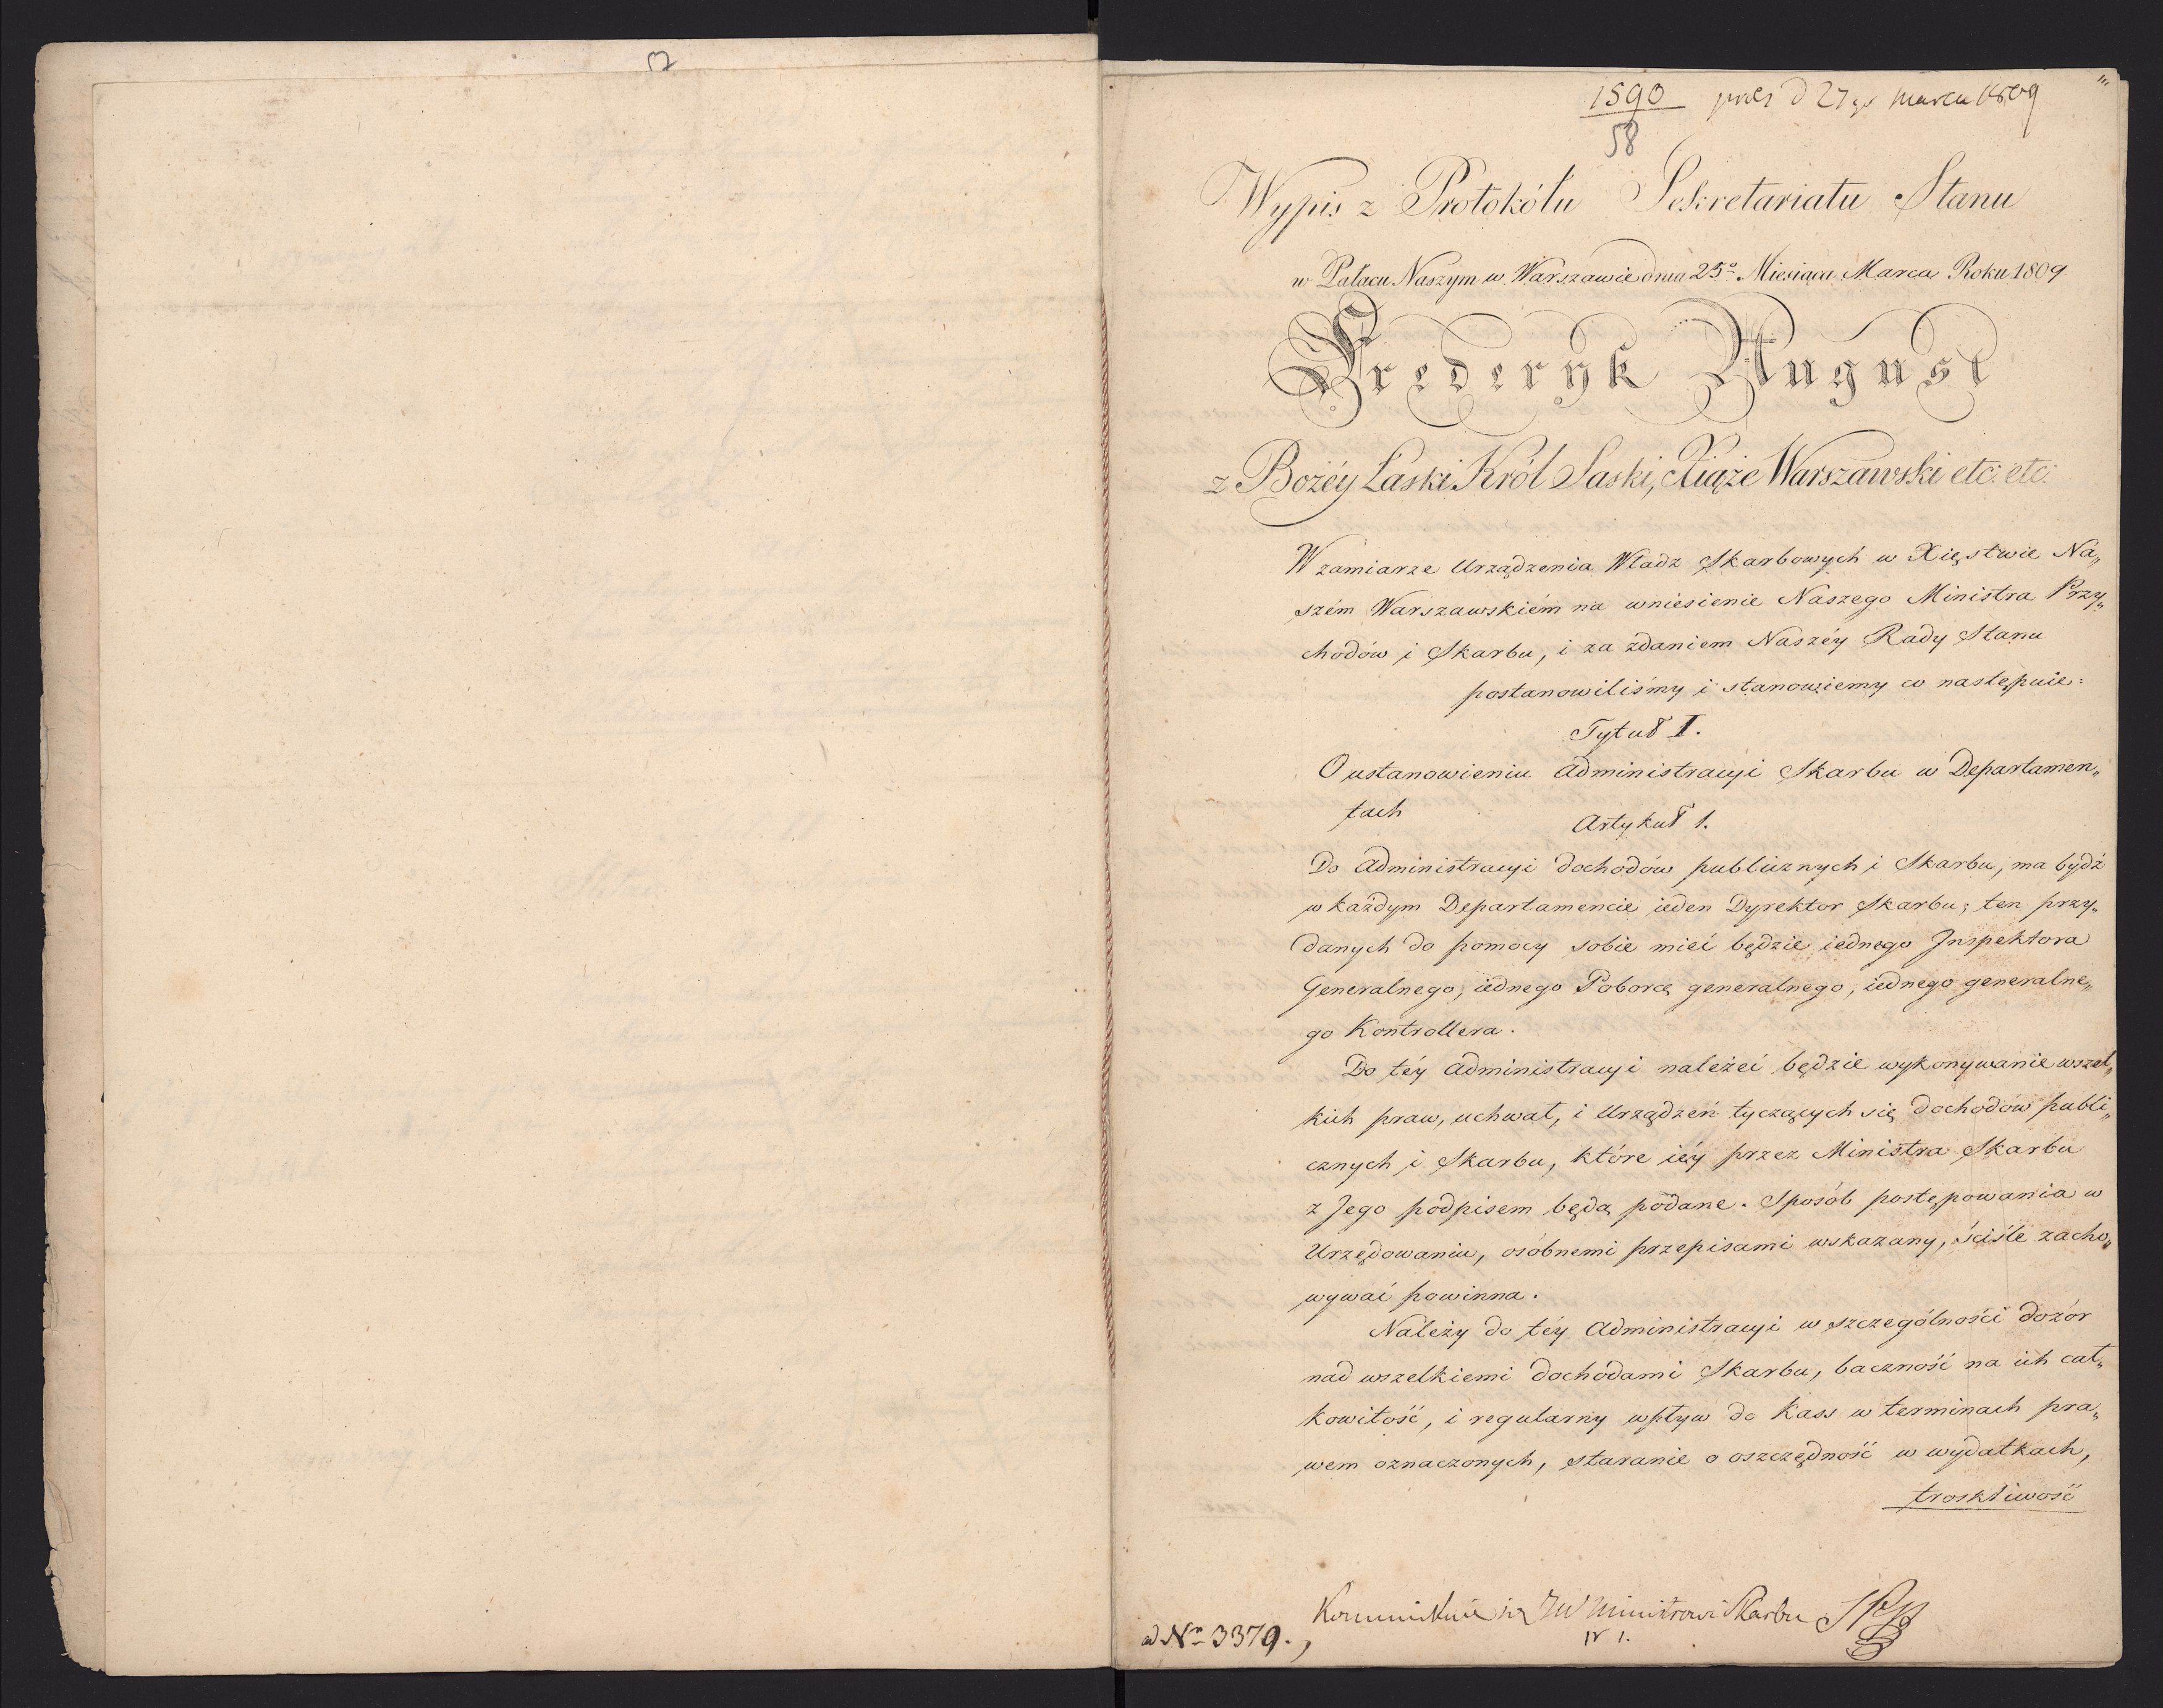 1590 pres d 27go marca 1809
58
Wypis z Protokółu Sekretariatu Stanu
w Pałacu Naszym w Warszawie dnia 25o Miesiąca Marca Roku 1809
Frederyk August
z Bożéy Łaski Król Saski, Xiąże Warszawski etc: etc:
W zamiarze Urządzenia Władz Skarbowych w Xięstwie Na„
szém Warszawskiém na wniesienie Naszego Ministra Przy„
chodów i Skarbu, i za zdaniem Naszéy Rady Stanu
postanowiliśmy i stanowiemy co następuie:
Tytuł I.
O ustanowieniu Administracyi Skarbu w Departamen„
tach
Artykuł 1.
Do Administracyi dochodów publicznych i Skarbu, ma bydź
w każdym Departamencie ieden Dyrektor Skarbu; ten przy„
danych do pomocy sobie mieć będzie iednego Inspektora
Generalnego, iednego Poborcę generalnego, iednego generalne„
go Kontrollera.
Do téy Administracyi należeć będzie wykonywanie wszel„
kich praw, uchwał, i Urządzeń tyczących się dochodów publi„
cznych i Skarbu, które iéy przez Ministra Skarbu
z Jego podpisem będą podane. Sposób postępowania w
Urzędowaniu, osóbnemi przepisami wskazany, ściśle zacho„
wywać powinna.
Należy do téy Administracyi w szczególności dozór
nad wszelkiemi dochodami Skarbu, baczność na ich cał„
kowitość, i regularny wpływ do Kass w terminach pra„
wem oznaczonych, staranie o oszczędność w wydatkach,
troskliwość
Kommunikuie się JW Ministrowi Skarbu
ad No 3379.